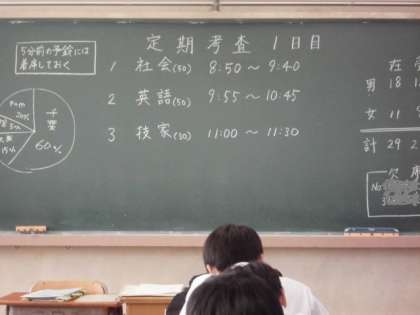 定期考査 1日目
5分前の予鈴には
着席しておく
1 社会(50) 8:50～9:40
2 英語(50) 9:55～10:45
3 技家(30) 11:00～11:30
20%
千葉
60%
5%
15%
在
男 18 18
女 11
計 29 2
欠席
No